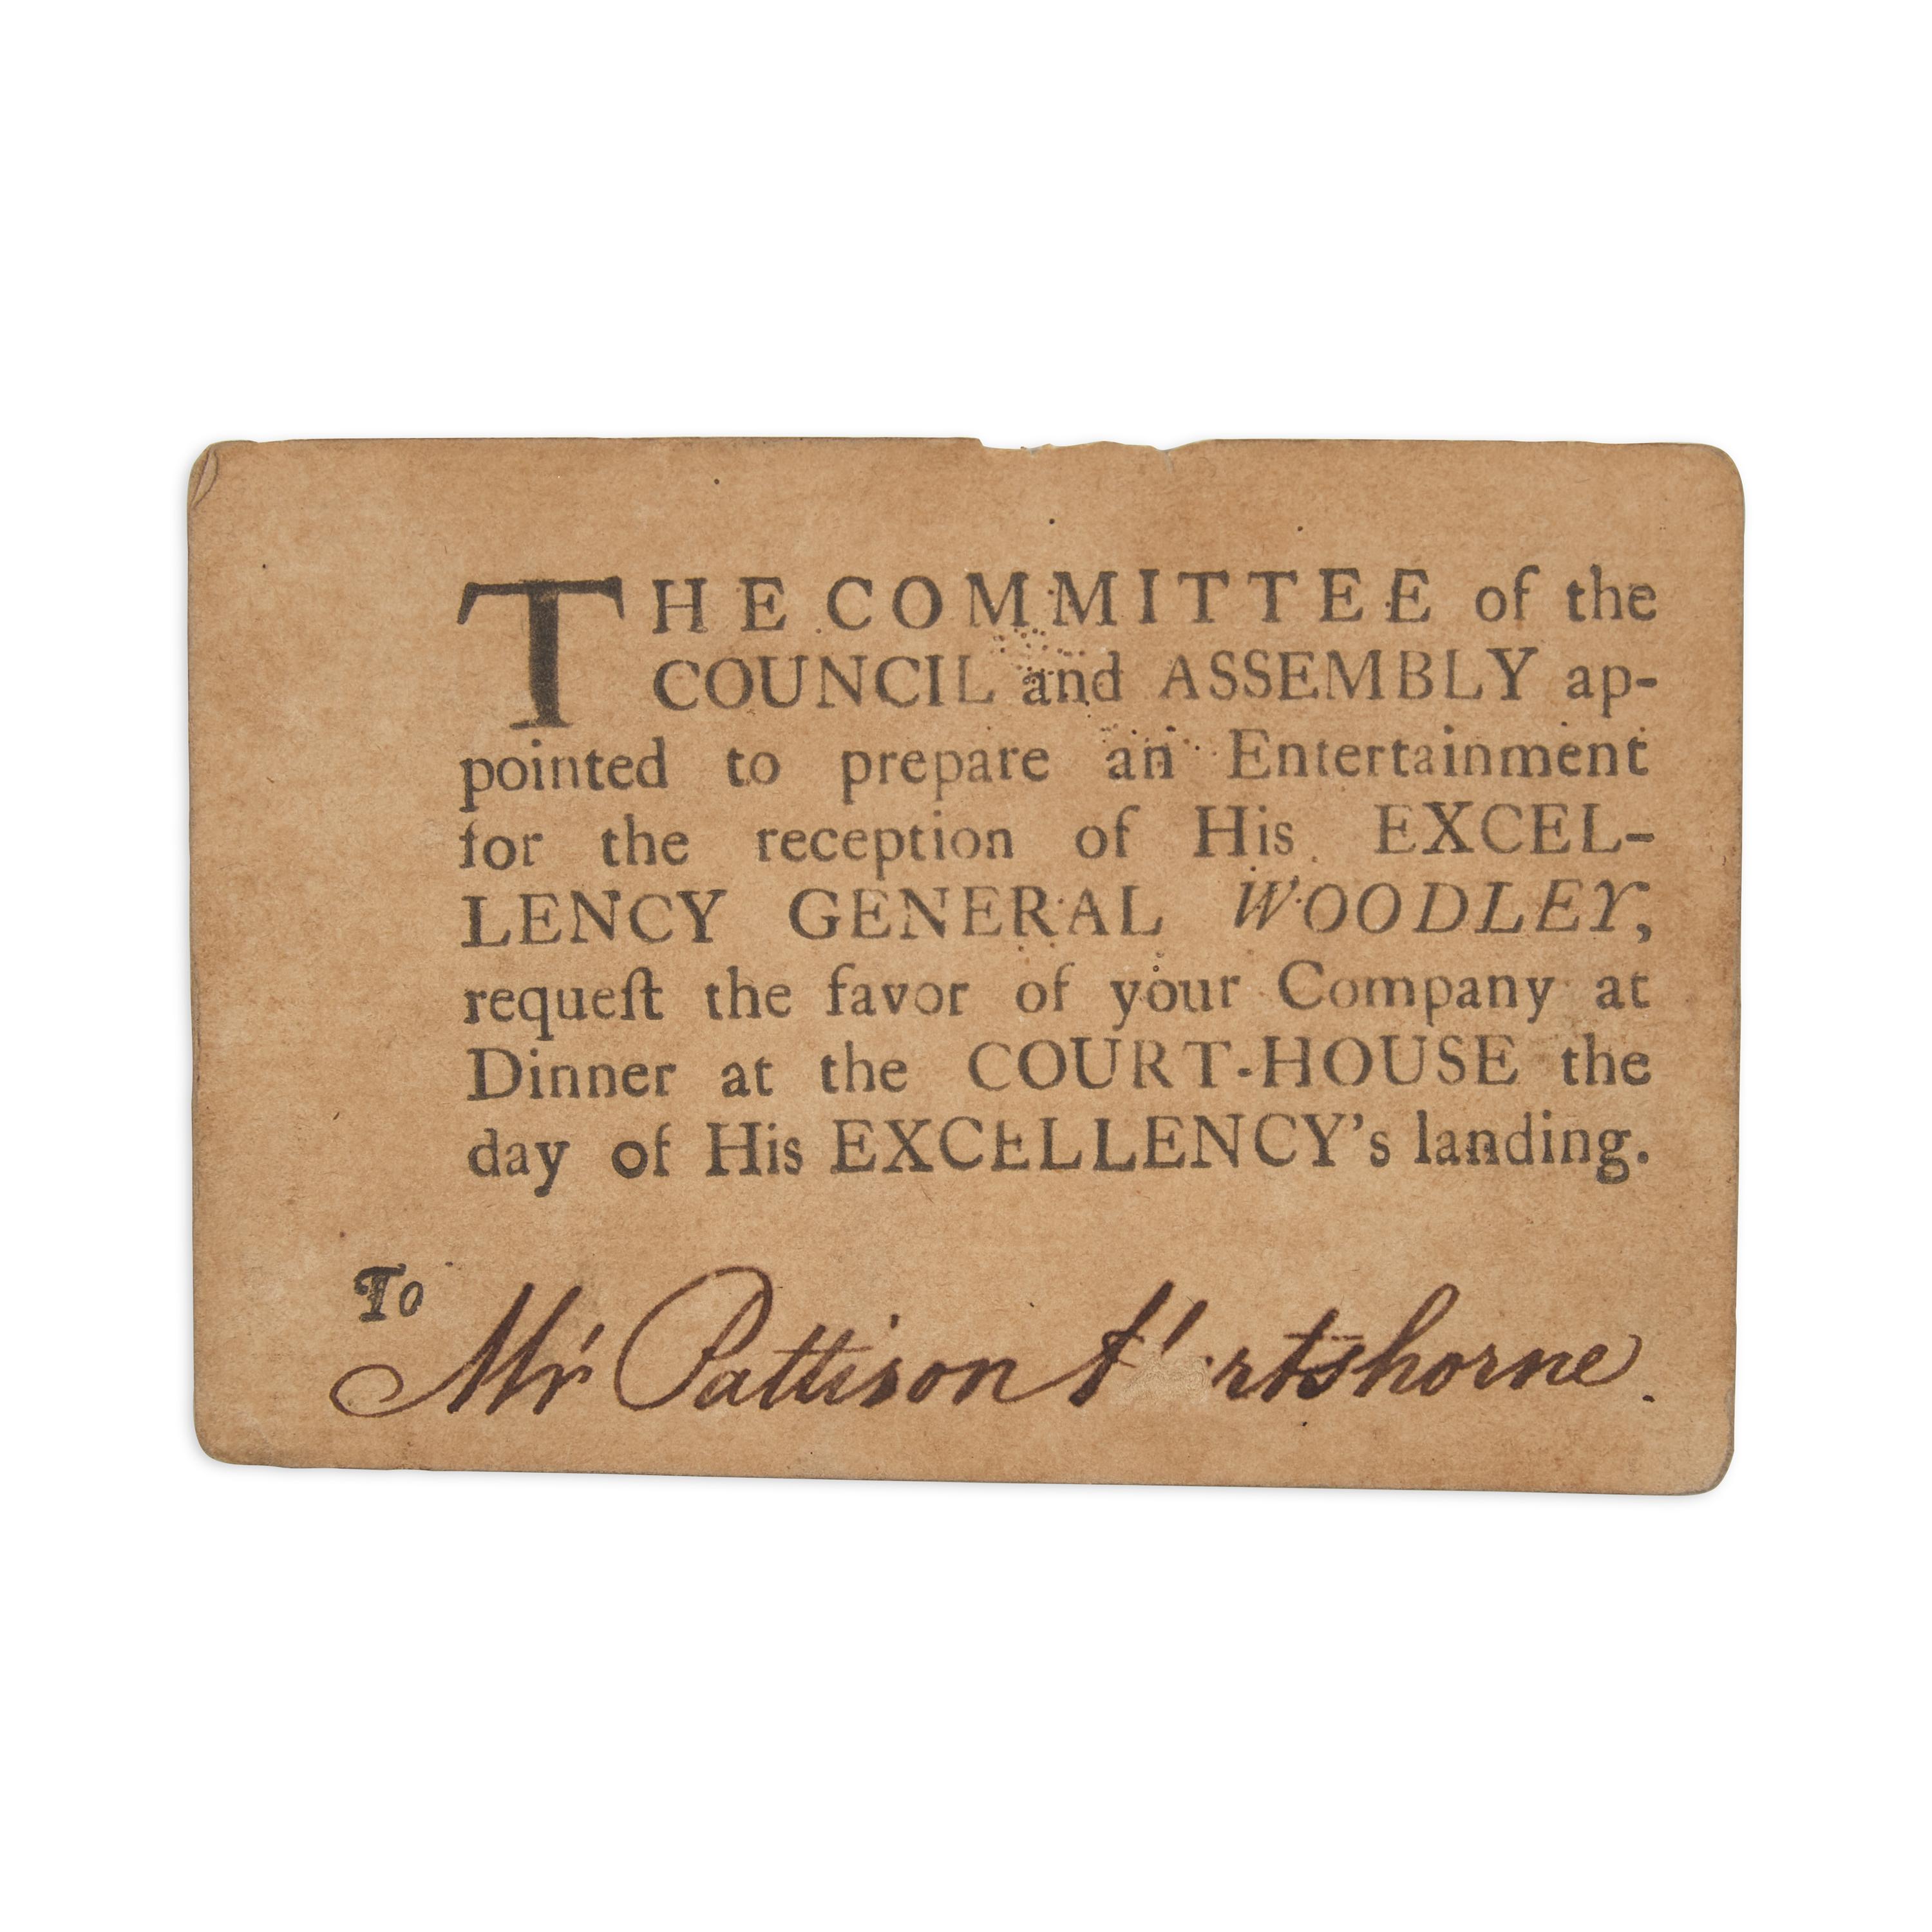 THE COMMITTEE of the
COUNCIL and ASSEMBLY ap-
pointed to prepare an Entertainment
for the reception of His EXCEL-
LENCY GENERAL WOODLEY,
requeſt the favor of your Company at
Dinner at the COURT-HOUSE the
day of His EXCELLENCY's landing.
To
Mr Pattison